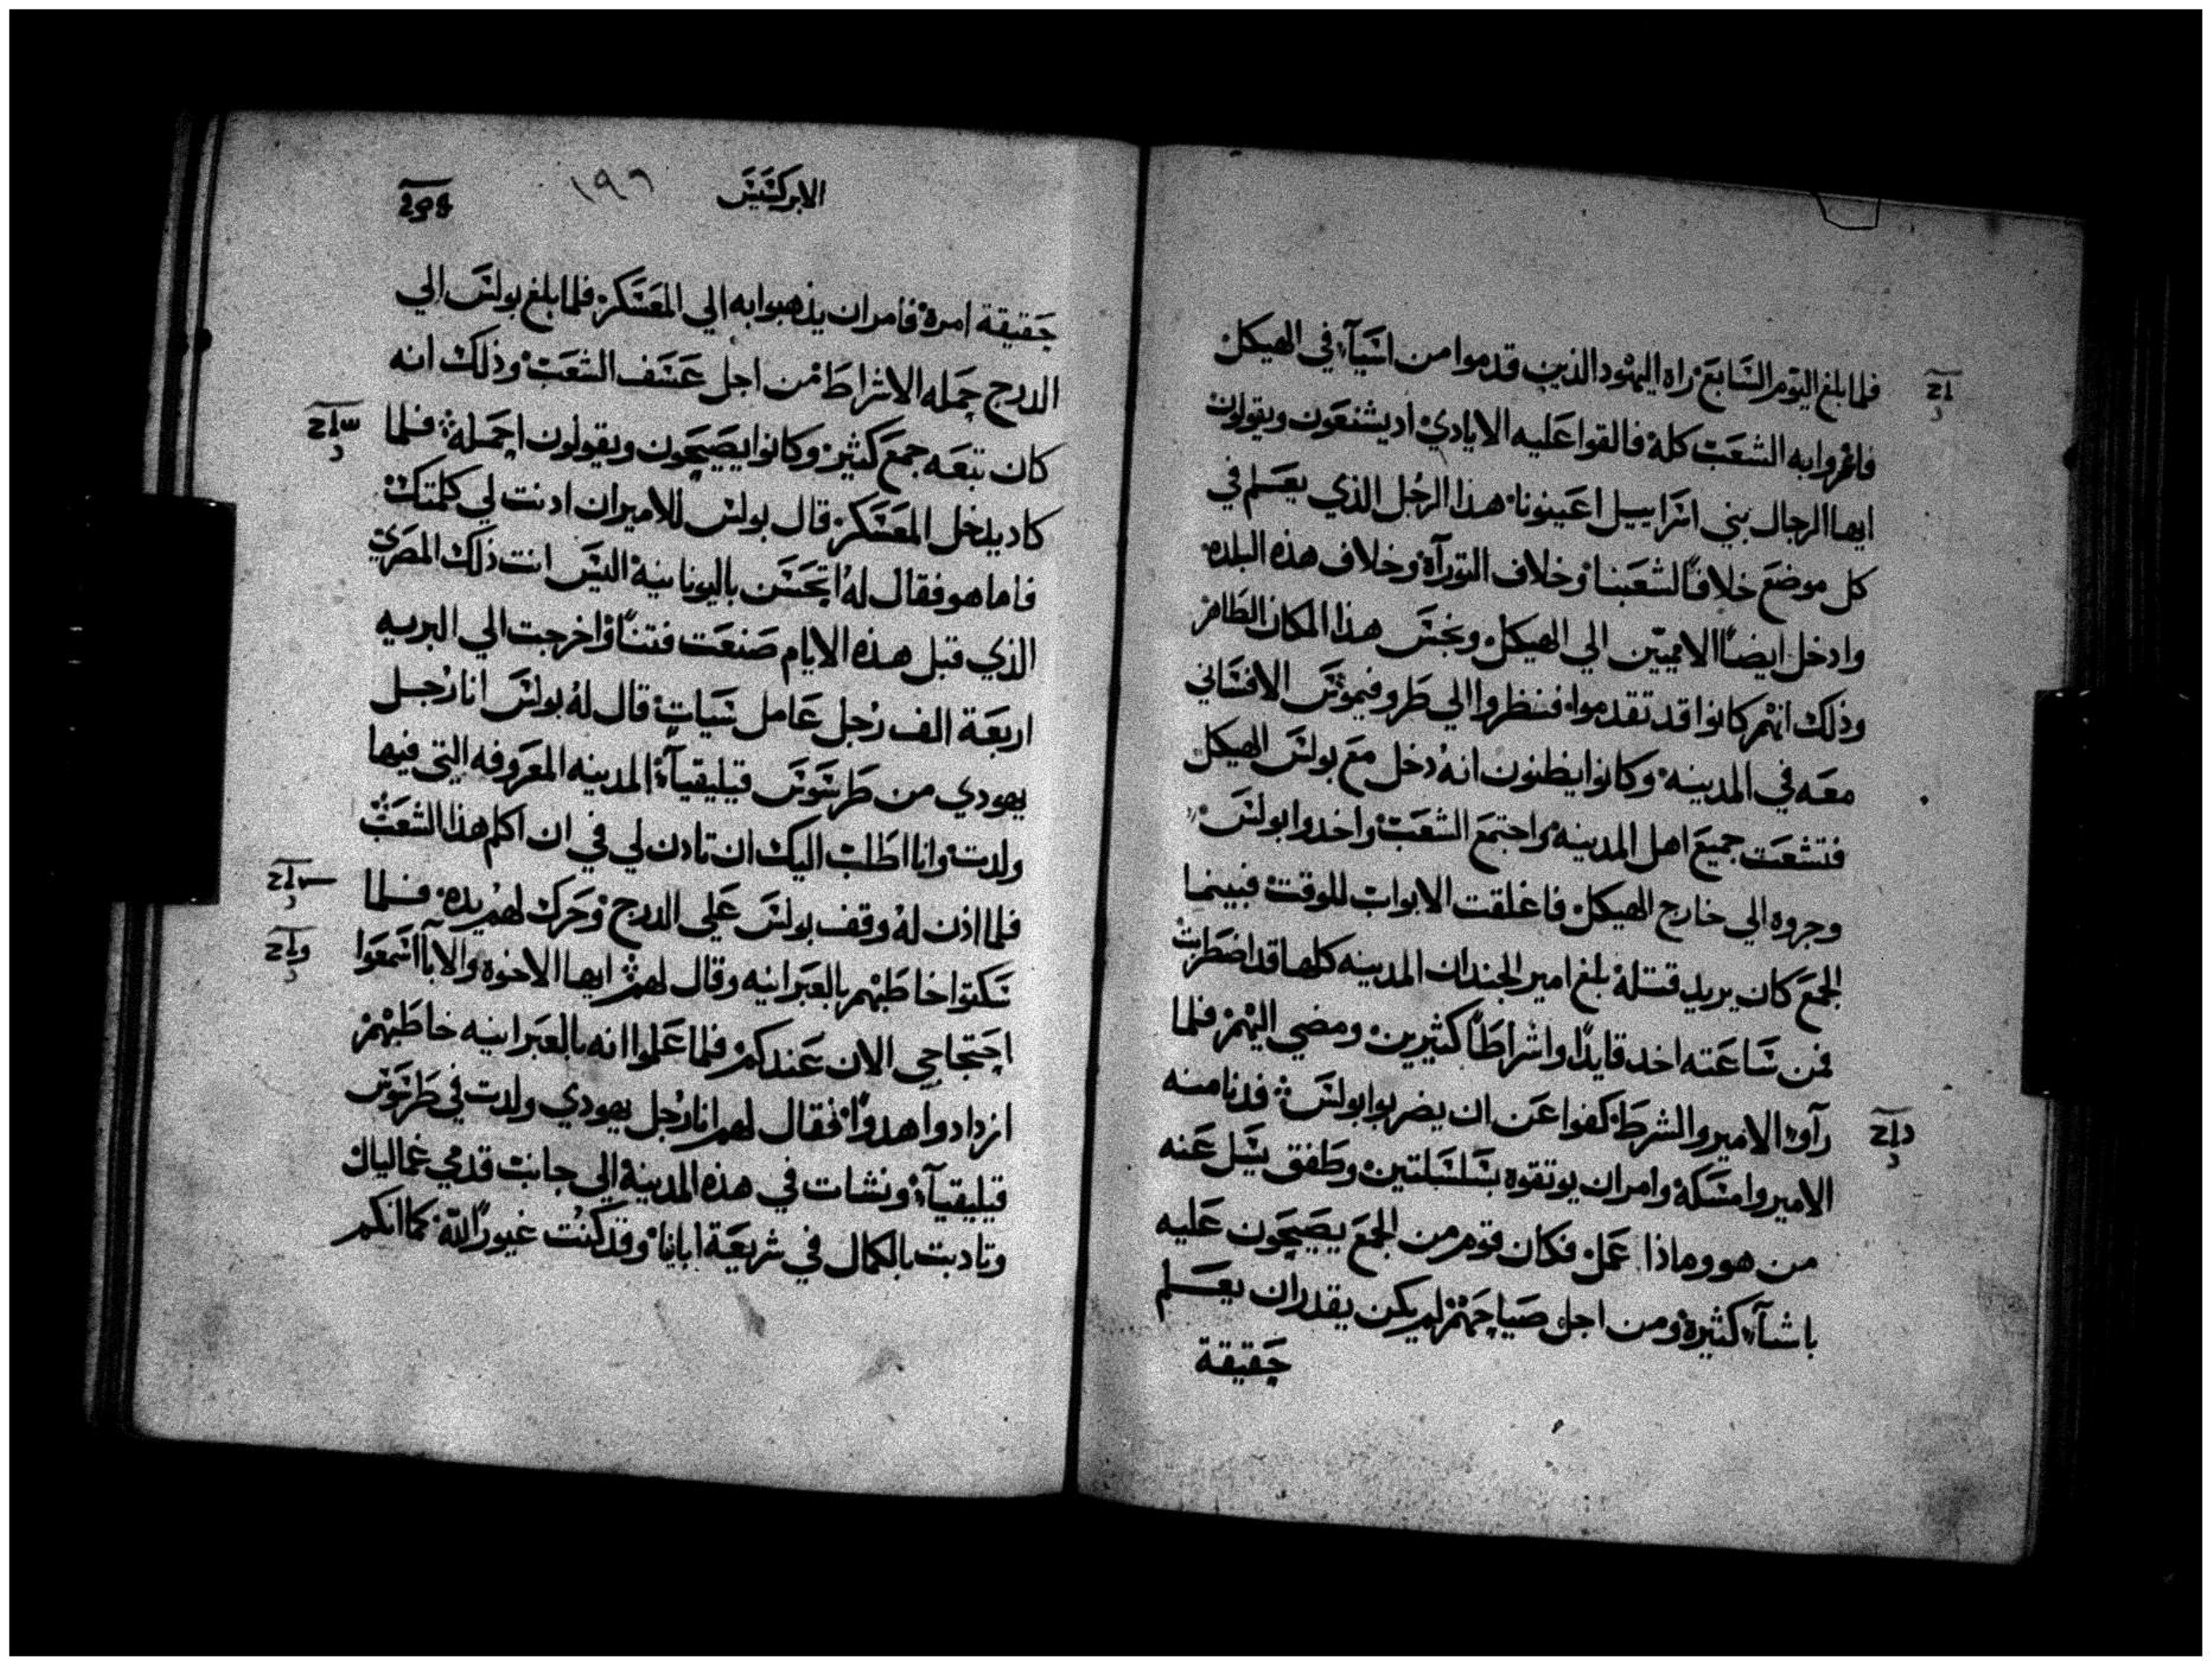 فلما بلغ اليوم السابع راه اليهود الذين قدموا من اسيآ في الهيكل
فاغروا به الشعب كله فالقوا عليه الايادي اد يشنعون ويقولون
ايها الرجال بني اسراييل اعينونا هذا الرجل الذي يعلم في
كل موضع خلافًا لشعبنا وخلاف التوراة وخلاف هذه البلده
وادخل ايضًا الامميين الي الهيكل ونجس هذا المكان الطاهر
وذلك انهم كانوا قد تقدموا فنظروا الي طروفيموس الافساني
معه في المدينه وكانوا يظنون انه دخل مع بولس الهيكل
فتشعت جميع اهل المدينه واجتمع الشعب واخدوا بولس
وجروه الي خارج الهيكل فاغلقت الابواب للوقت فبينما
الجمع كان يريد قتله بلغ امير الجند ان المدينه كلها قد اضطربت
فمن ساعته اخد قايدًا واشراطًا كثيرين ومضي اليهم فلما
رآوا الامير والشرط كفوا عن ان يضربوا بولس فدنا منه
الامير وامسكه وامر ان يوتقوه بسلسلتين وطفق يسل عنه
من هو وماذا عمل فكان قوم من الجمع يصيحون عليه
باشيآ كثيرة ومن اجل صياحهم لم يكن يقدر ان يعلم
حقيقة
الابركسيس ١٩٦
حقيقة امره فامر ان يذهبوا به الي المعسكر فلما بلغ بولس الي
الدرج حمله الاشراط من اجل عسف الشعب وذلك انه
كان تبعه جمع كثير وكانوا يصيحون ويقولون احمله فلما
كاد يدخل المعسكر قال بولس للامير ان ادنت لي كلمتك
فاما هو فقال له اتحسن باليونانية اليس انت ذلك المصري
الذي قبل هذه الايام صنعت فتنًا واخرجت الي البريه
اربعة الف رجل عامل سيات قال له بولس انا رجل
يهودي من طرسوس قيليقيآ المدينه المعروفه التي فيها
ولدت وانا اطلب اليك ان تادن لي في ان اكلم هذا الشعب
فلما اذن له وقف بولس علي الدرج وحرك لهم يده فلما
سكتوا خاطبهم بالعبرانيه وقال لهم ايها الاخوة والابآ اسمعوا
احتجاجي الان عندكم فلما علموا انه بالعبرانيه خاطبهم
ازدادوا هدوًا فقال لهم انا رجل يهودي ولدت في طرسوس
قيليقيآ ونشات في هذه المدينة الي جانب قدمي غماليال
وتادبت بالكمال في شريعة اباينا وقد كنت غيورًا لله كما انكم